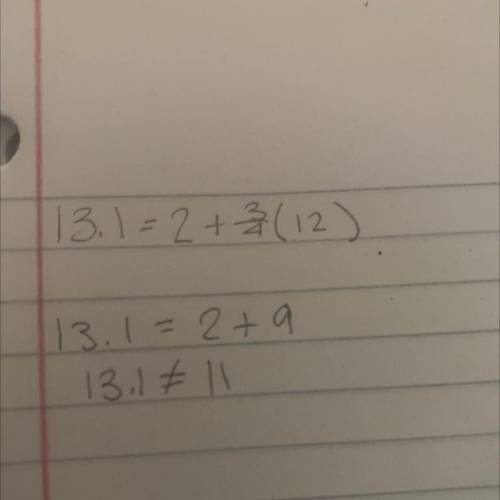 13.1 = 2 + 3/4 (12)
13.1 = 2 + 9
13.1 ≠ 11